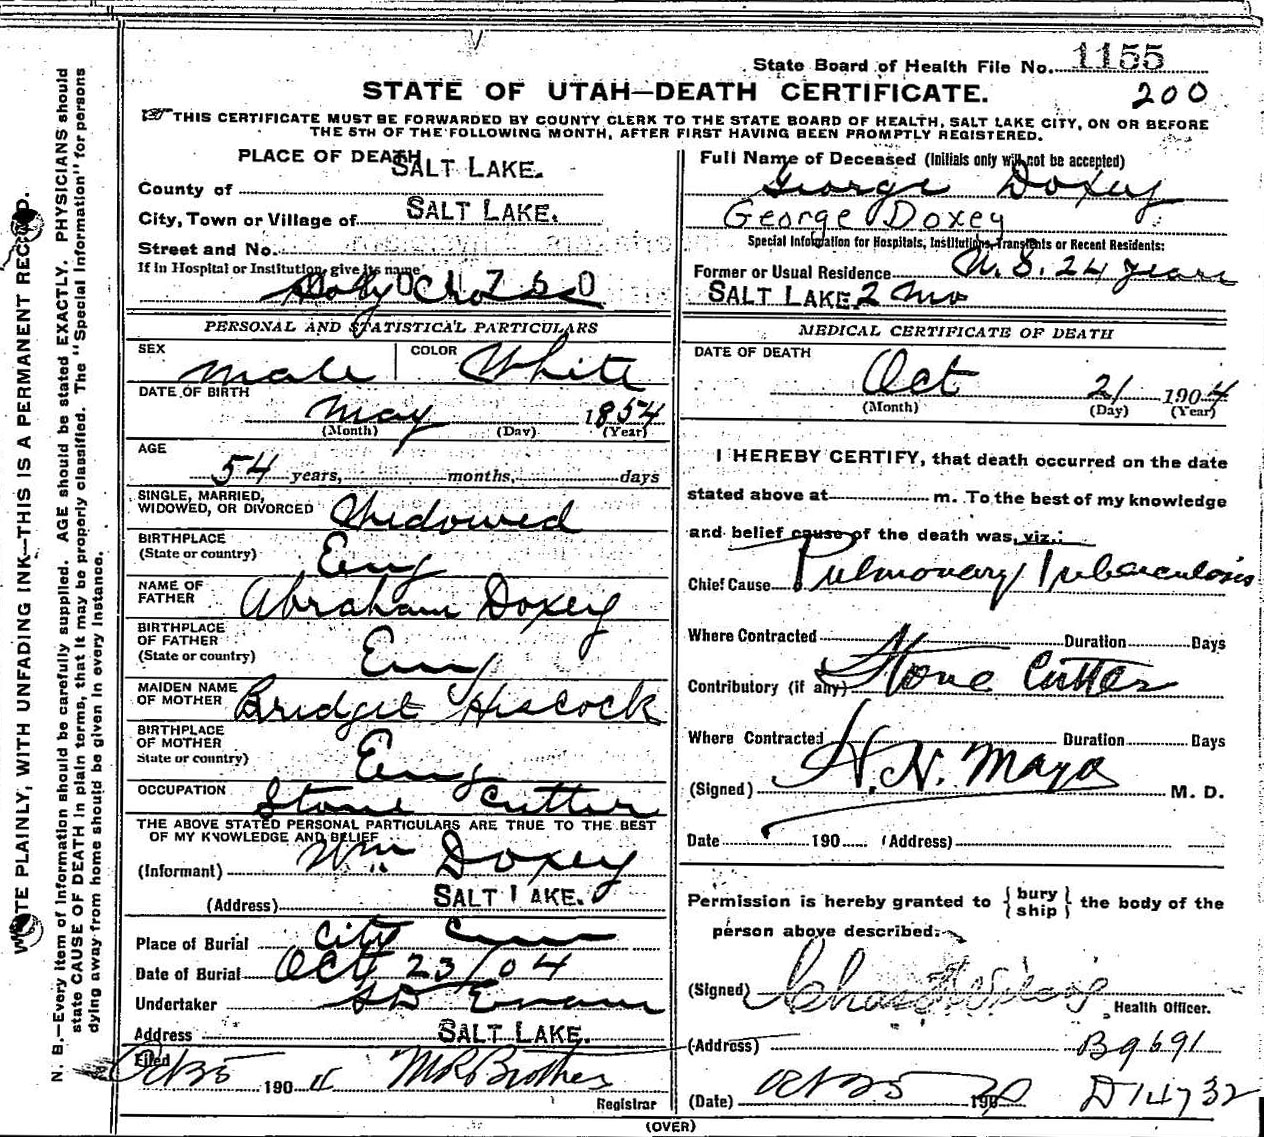 State Board of Health File No. 1155
STATE OF UTAH—DEATH CERTIFICATE. 200
THIS CERTIFICATE MUST BE FORWARDED BY COUNTY CLERK TO THE STATE BOARD OF HEALTH, SALT LAKE CITY, ON OR BEFORE
THE 5TH OF THE FOLLOWING MONTH, AFTER FIRST HAVING BEEN PROMPTLY REGISTERED.
WRITE PLAINLY, WITH UNFADING INK—THIS IS A PERMANENT RECORD.
N. B.—Every item of Information should be carefully supplied. AGE should be stated EXACTLY. PHYSICIANS should
state CAUSE OF DEATH in plain terms, that it may be properly classified. The "Special Information" for persons
dying away from home should be given in every instance.
PLACE OF DEATH
County of SALT LAKE.
City, Town or Village of SALT LAKE.
Street and No.
If in Hospital or Institution, give its name
Holy Cross
PERSONAL AND STATISTICAL PARTICULARS
SEX Male COLOR White
DATE OF BIRTH
May 1854
(Month) (Day) (Year)
AGE
54 years, months, days
SINGLE, MARRIED,
WIDOWED, OR DIVORCED Widowed
BIRTHPLACE
(State or country) Eng
NAME OF
FATHER Abraham Doxey
BIRTHPLACE
OF FATHER
(State or country) Eng
MAIDEN NAME
OF MOTHER Bridget Hiscock
BIRTHPLACE
OF MOTHER
State or country) Eng
OCCUPATION Stone Cutter
THE ABOVE STATED PERSONAL PARTICULARS ARE TRUE TO THE BEST
OF MY KNOWLEDGE AND BELIEF
(Informant) Wm Doxey
(Address) SALT LAKE.
Place of Burial City Cem
Date of Burial Oct 23/04
Undertaker SD Evans
Address SALT LAKE.
Filed Oct 25 190
Registrar
Full Name of Deceased (Initials only will not be accepted)
George Doxey
George Doxey
Special Information for Hospitals, Institutions, Transients or Recent Residents:
Former or Usual Residence U. S. 24 years
SALT LAKE 2 mo
MEDICAL CERTIFICATE OF DEATH
DATE OF DEATH
Oct 21 1904
(Month) (Day) (Year)
I HEREBY CERTIFY, that death occurred on the date
stated above at m. To the best of my knowledge
and belief cause of the death was, viz.:
Chief Cause Pulmonary Tuberculosis
Where Contracted Duration Days
Contributory (if any) Stone Cutter
Where Contracted Duration Days
(Signed) H. N. Mayo M. D.
Date 190 (Address)
Permission is hereby granted to {bury
ship} the body of the
person above described.
(Signed) Health Officer.
(Address) B9691
(Date) Oct 25 190 D14732
(OVER)